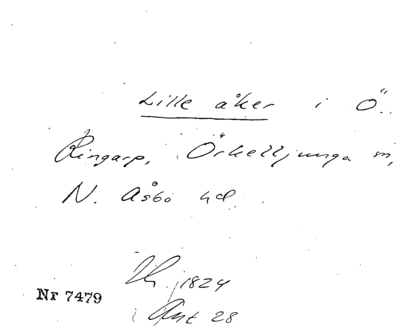 Lille åker i Ö.
Ringarp, Örkelljunga sn,
N. Åsbo hd.
Lh. j 1824
Akt 28
Nr 7479